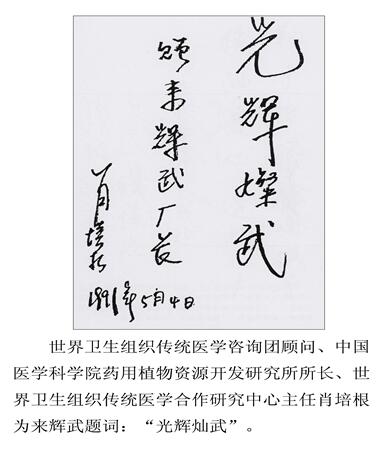 光辉燦武
颂来辉武厂长
肖培根
1991年5月4日
世界卫生组织传统医学咨询团顾问、中国
医学科学院药用植物资源开发研究所所长、世
界卫生组织传统医学合作研究中心主任肖培根
为来辉武题词：“光辉灿武”。